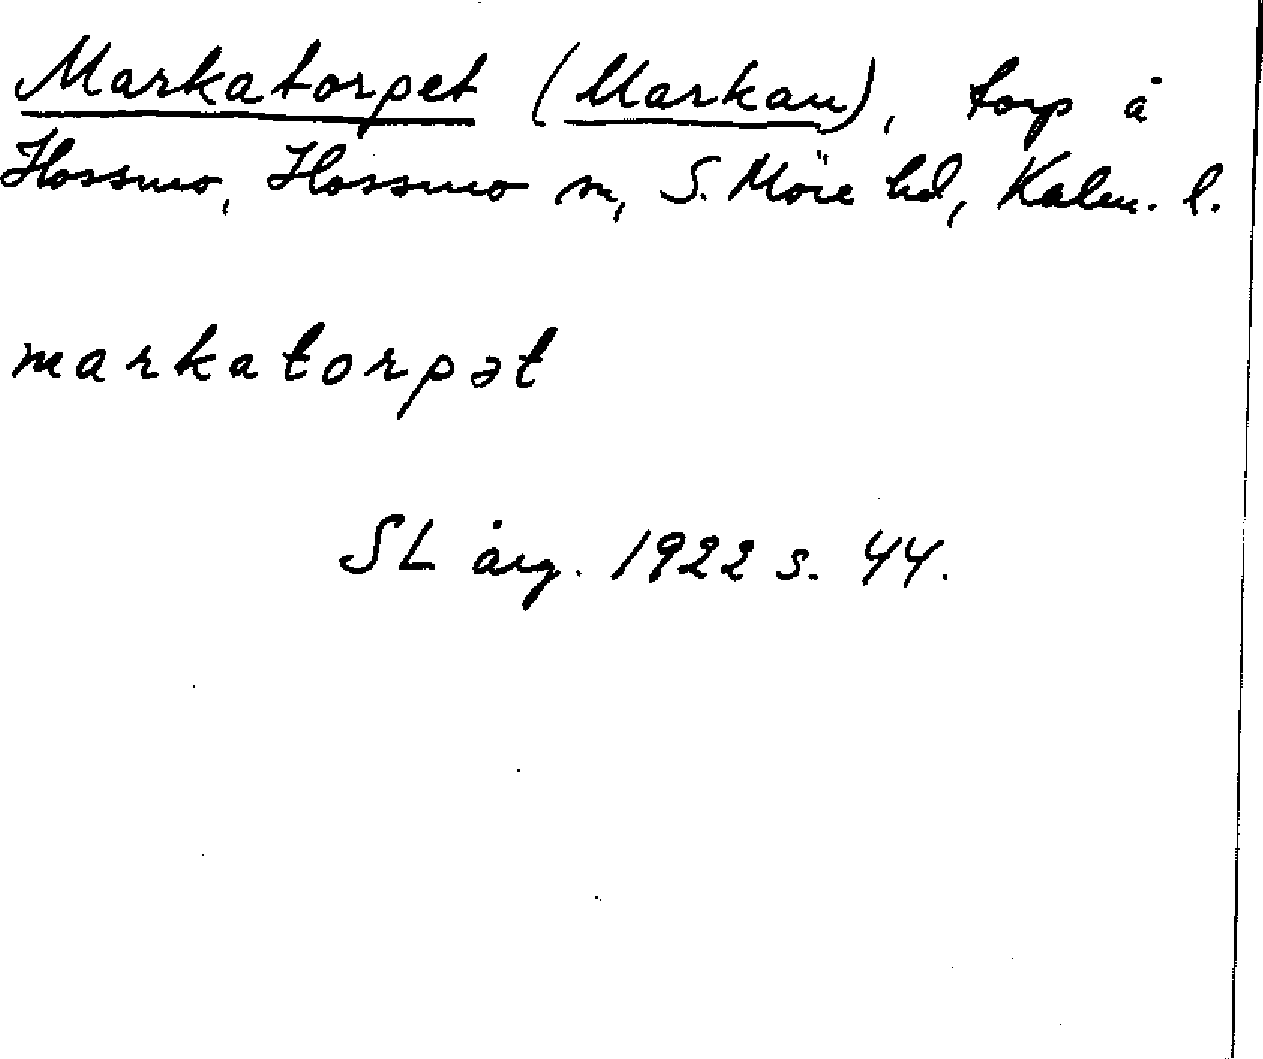 Markatorpet (Markan), torp å
Hossmo, Hossmo sn, S. Möre hd, Kalm. l.
markatorpət
SL årg. 1922 s. 44.